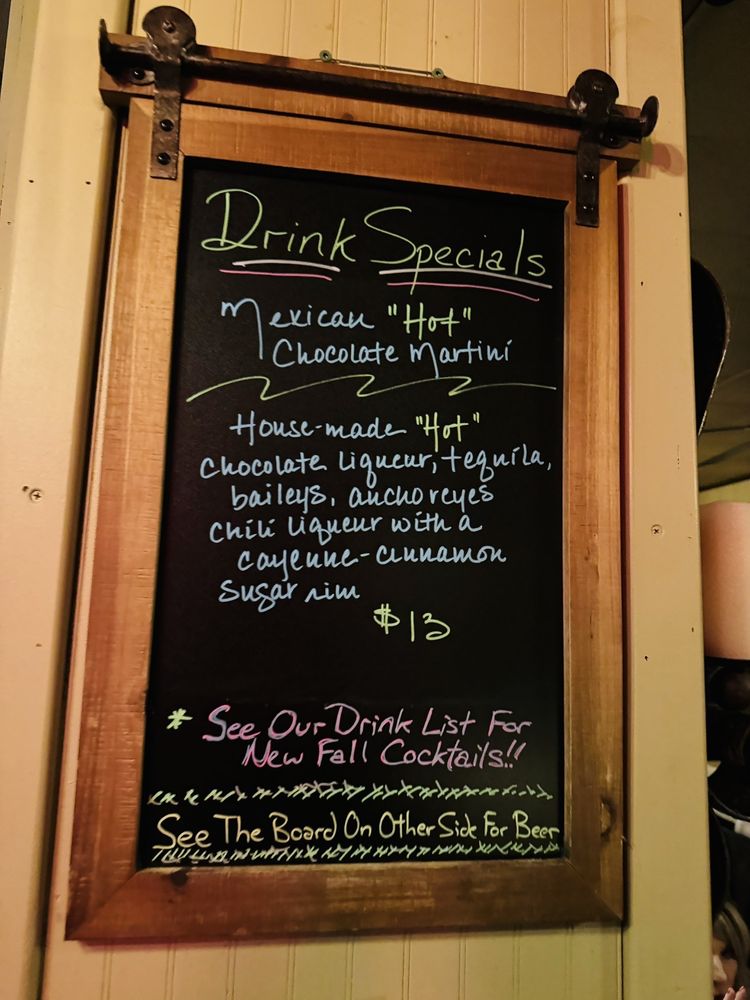 Drink Specials
Mexican "Hot"
Chocolate Martini
House-made "Hot"
Chocolate Liqueur, tequila,
baileys, ancho reyes
Chili Liqueur with a
cayenne-cinnamon
sugar rim
$13
* See Our Drink List For
New Fall Cocktails!!
See The Board On Other Side For Beer